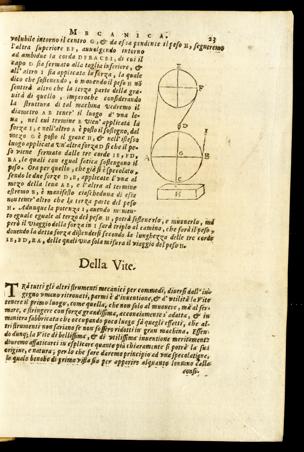 MECANICA. 23
volubile intorno il centro G, & da essa pendente il peso H, segneremo
l'altra superiore EF, auuolgendo intorno
ad ambedue la corda DFBACEI, di cui il
capo D sia fermato alla taglia inferiore, &
all'altro I sia applicata la forza, la quale
dico che sostenendo, ò mouendo il peso H nō
sentirà altro che la terza parte della gra-
uità di quello, imperoche considerando
la struttura di tal machina vedremo il
diametro AB tener' il luogo d'vna le-
ua, nel cui termine B vien' applicata la
forza I, e nell'altro A è posto il sostegno, dal
mezo G è posto il graue H, & nell'istesso
luogo applicata vn'altra forza D
peso viene firmato dalle tre corde IE, FD,
BA, le quali con egual fatica sostengono il
peso. Ora per quello, che già si è specolato,
sendo le due forze D, B, applicate l'vna al
mezo della leua AB, e l'altra al termine
estremo B, è manifesto ciascheduna di esse
non tener' altro che la terza parte del peso
H. Adunque la potenza I, auendo momen-
to eguale al terzo del peso H, potrà sostenerlo, e muouerlo, mà
però il viaggio della forza in I sarà triplo al camino, che farà il peso,
douendo la detta forza distendersi secondo la lunghezza delle tre corde
IE, FD, BA, delle quali vna sola misura il viaggio del peso H.
Della Vite.
TRà tutti gli altri strumenti mecanici per commodi, diuersi dall'in-
gegno vmano ritrouati, parmi è d'inuentione, & d'vtilità la Vite
tenere il primo luogo, come quella, che non solo al muouere, mà al fer-
mare, e stringere con forza grandissima, acconciamente s'adatta, & in
maniera fabbricata che occupando poco luogo fà quegli effetti, che al-
tri strumenti non fariano se non fossero ridotti in gran machina. Essen-
do dunq; la Vite di bellissima, & di vtilissima inuentione meritament?
douremo affaticarci in esplicare quanto più chiaramente si potrà la sua
origine, e natura; per lo che fare daremo principio ad vna specolatione,
la quale benche di prima vista sia per apparire alquanto lontana dalla
consi-
E
F
I
D
A
G
B
C
H